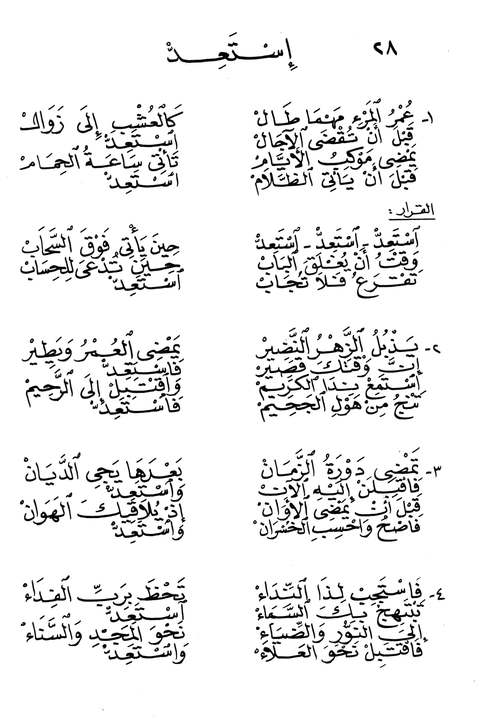 ٢٨ إِسْتَعِدْ
١- عُمْرُ ٱلْمَرْءِ مَهْمَا طَالْ كَالْعُشْبِ إِلَى زَوَالْ
قَبْلَ أَنْ تُقْضَى ٱلْآجَالْ ٱسْتَعِدْ
يَمْضِى مَوْكِبُ ٱلْأَيَّامْ تَأْتِى سَاعَةُ الْحِمَامْ
قَبْلَ أَنْ يَأْتِى ٱلظَّلَامْ ٱسْتَعِدْ
القرار:
ٱسْتَعِدْ - ٱسْتَعِدْ - ٱسْتَعِدْ حِينَ يَأْتِى فَوْقَ السَّحَابْ
وَقْتَ أَنْ يُغْلَقَ ٱلْبَابْ حِينَ تُدْعَى لِلْحِسَابْ
تَقْرَعُ فَلَا تُجَابْ ٱسْتَعِدْ
٢- يَذْبُلُ ٱلزَّهْرُ النَّضِيرْ يَمْضِى ٱلْعُمْرُ وَيَطِيرْ
إِنَّ وَقْتَكَ قَصِيرْ فَاسْتَعِدْ
إِسْتَمِعْ نِدَا ٱلْكَرِيمْ وَٱقْتَبِلْ إِلَى ٱلرَّحِيمْ
تَنْجُ مِنْ هَوْلِ ٱلْجَحِيمْ فَاسْتَعِدْ
٣- تَمْضِى دَوْرَةُ ٱلزَّمَانْ بَعْدَهَا يَجِى ٱلدَّيَّانْ
فَاقْبَلَنْ إِلَيْهِ ٱلْآنْ وَٱسْتَعِدْ
قَبْلَ أَنْ يَمْضِى ٱلْأَوَانْ إِذْ يُلَاقِيكَ ٱلْهَوَانْ
فَاصْحُ وَاحْسِبِ ٱلْخُسْرَانْ وَٱسْتَعِدْ
٤- فَاسْتَجِبْ لِذَا ٱلنِّدَاءْ تَحْظَ بِرَبِّ ٱلْفِدَاءْ
تَبْتَهِجْ بِكَ السَّمَاءْ ٱسْتَعِدْ
إِلَى ٱلنُّورِ وَٱلضِّيَاءْ نَحْوَ ٱلْمَجْدِ وَٱلسَّنَاءْ
فَاقْتَبِلْ نَحْوَ ٱلْعَلَاءْ وَٱسْتَعِدْ